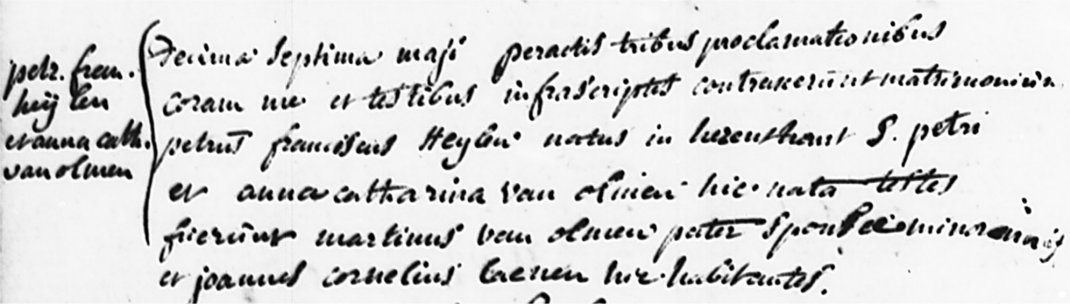 petr. fran.
heijlen
et anna cath.
van olmen
Decima septima maji peractis tribus proclamationibus
coram me et testibus infrascriptis contraxerunt matrimonium
petrus franciscus Heylen natus in herenthout S. petri
et anna catharina van olmen hic nata testes
fuerunt martinus van olmen pater sponsae minorennis
et joannes cornelius Laenen hic habitantes.